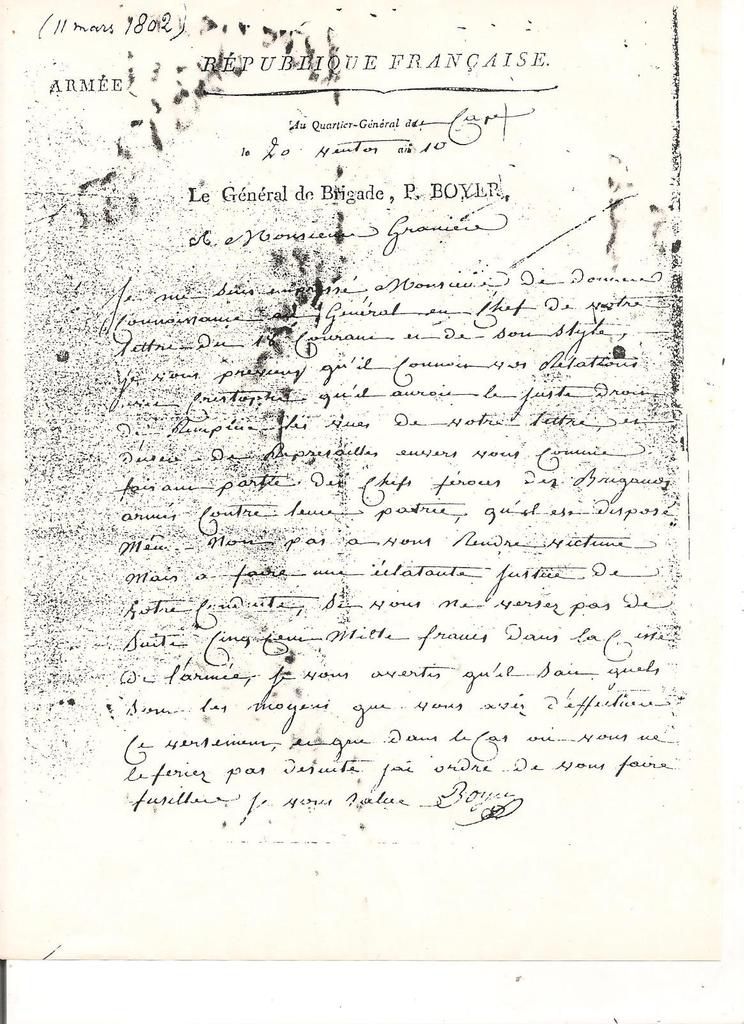 (11 mars 1802)
RÉPUBLIQUE FRANÇAISE.
ARMÉE
Au Quartier-Général du Cap
le 20 ventos an 10
Le Général de Brigade, P. BOYER,
A Monsieur Granière
Je me suis empressé Monsieur de donner
Connoissance au Général en Chef de votre
lettre du 18 Courant et de son style,
je vous previens qu'il Connoit vos Relations
avec Cristophe qu'il auroit le juste droit
de les vues de votre lettre, et
d'user de Represailles envers vous Comme
faisant partie des Chefs féroces des Brigands
armés Contre leur patrie, qu'il est disposé
même non pas a vous Rendre victime
Mais a faire une éclatante justice de
votre Conduite, Si vous ne versez pas de
Suite Cinq Cent Mille francs dans la Caisse
de l'armée, Je vous avertis qu'il Sait quels
Sont les moyens que vous avéz d'effectuer
Ce versement, et que dans le Cas où vous ne
le feriez pas desuite j'ai ordre de vous faire
fusiller Je vous Salue Boyer